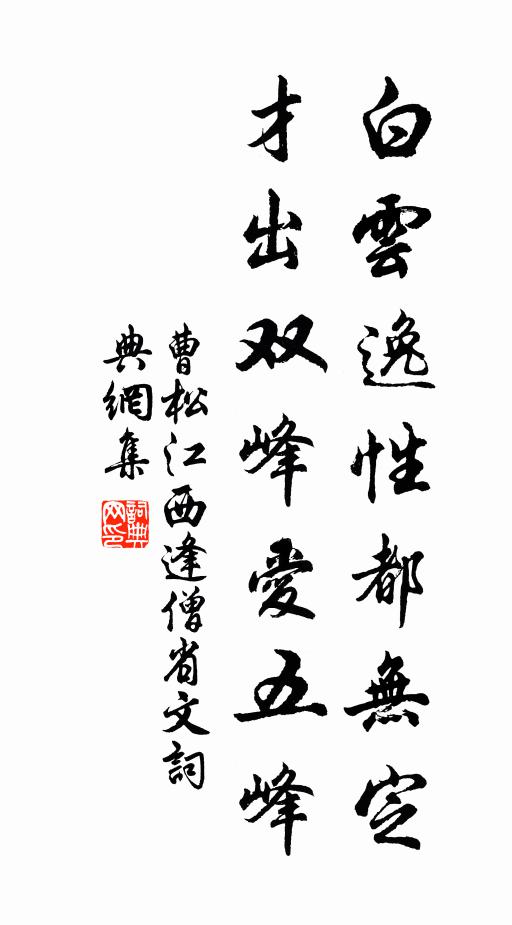 白雲逸性都無定
才出双峰愛五峰
曹松江西逢僧省文詞
典網集
詞典网印